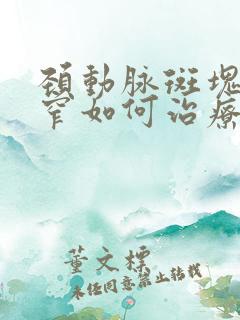 頚動脉斑塊
窄如何治療
董文標
未经同意禁止转载